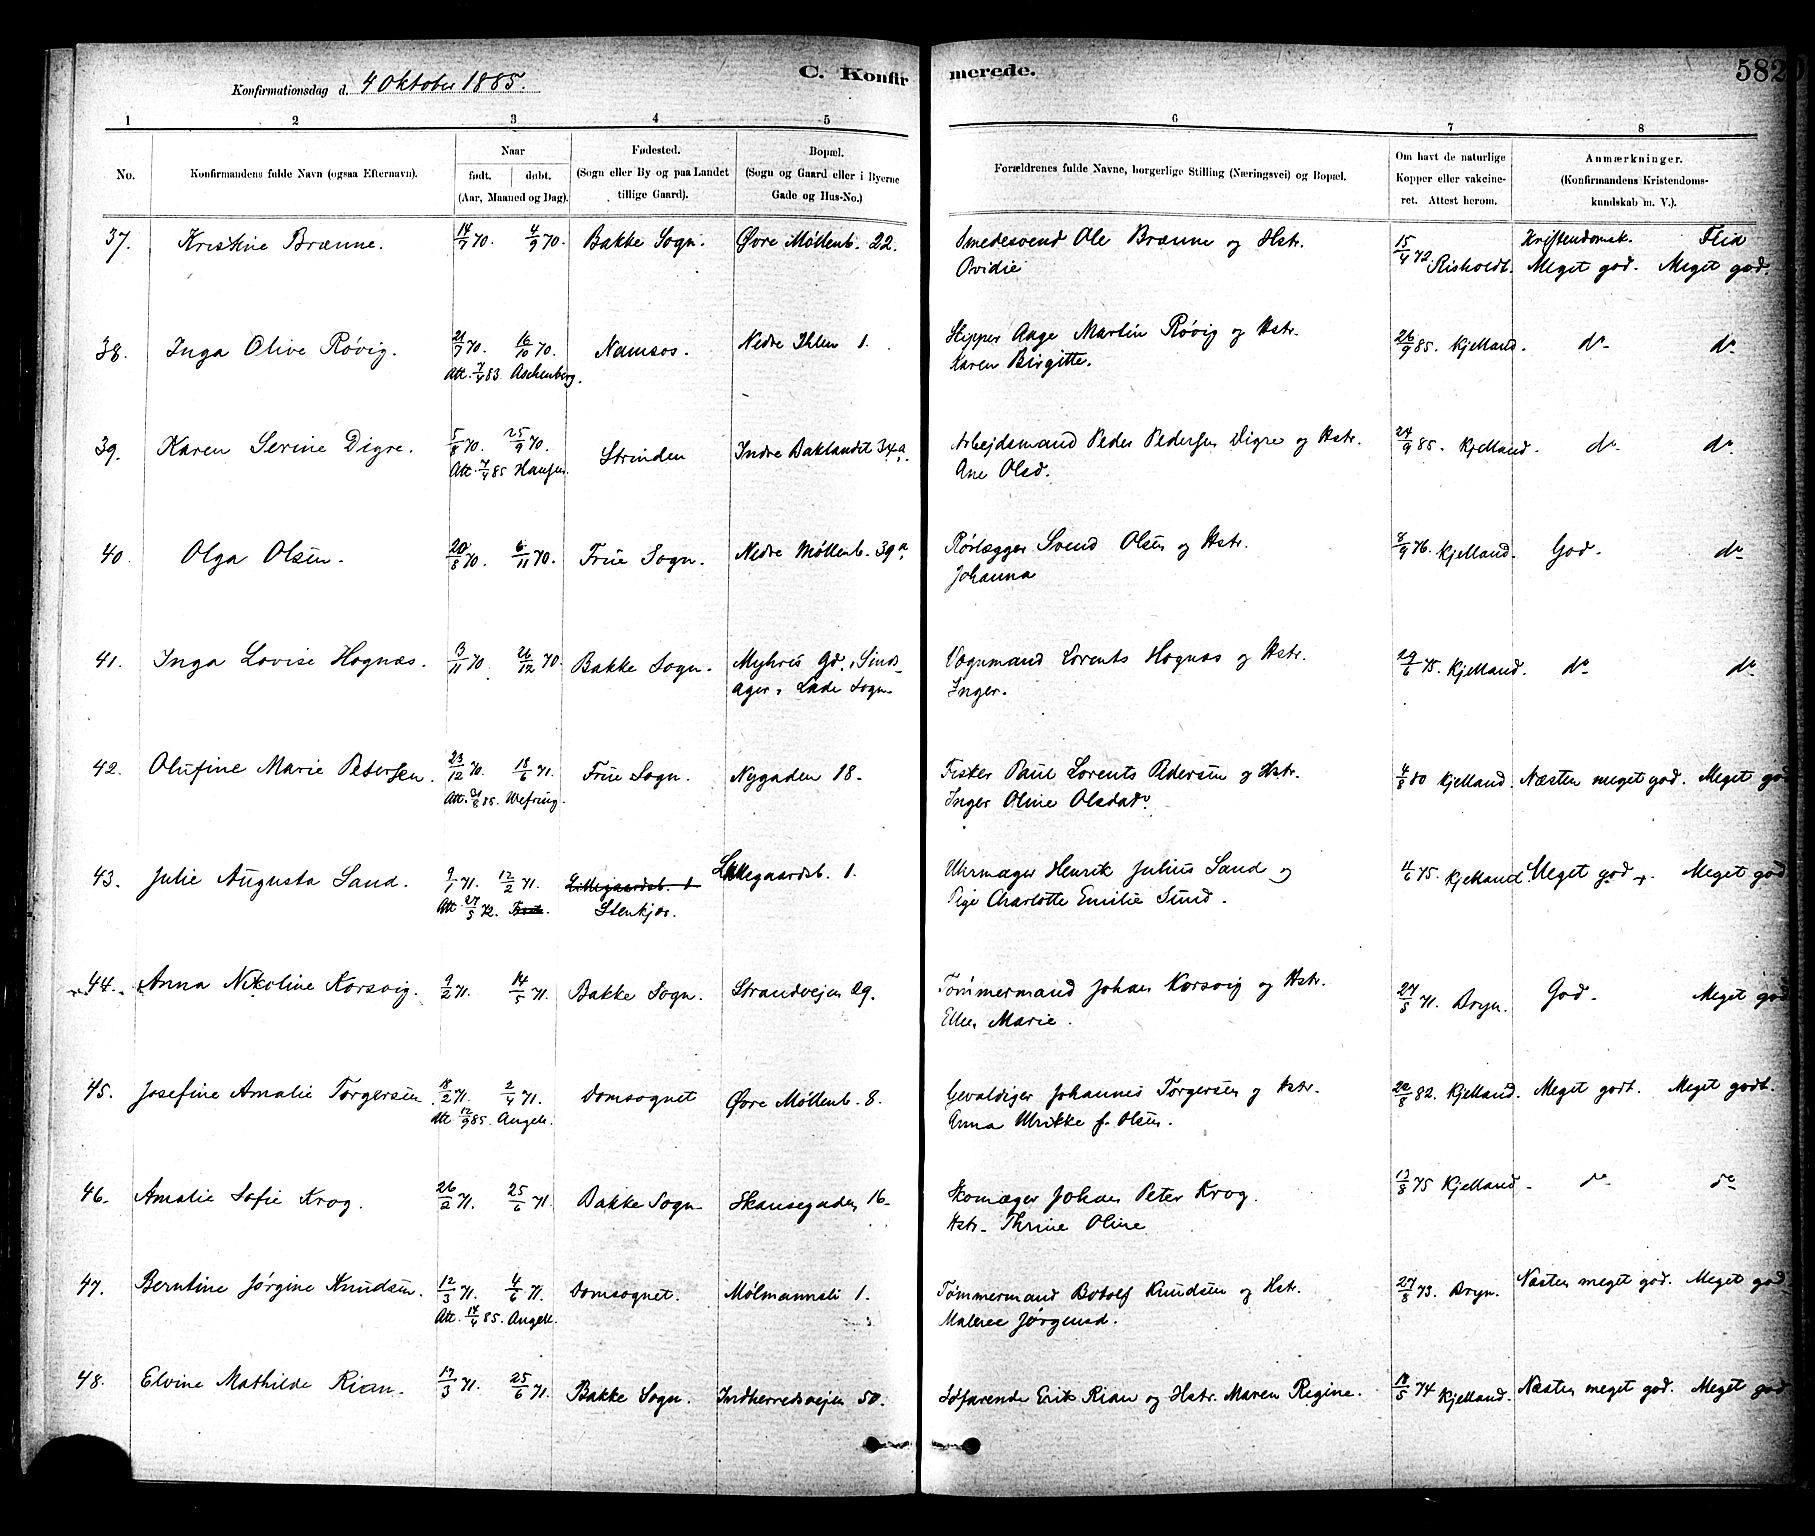 C. Konfirmerede.
582
Konfirmationsdag d. 4 Oktober 1885.
1 2 3 4 5 6 7 8
No.
Konfirmandens fulde Navn (ogsaa Efternavn).
Naar
født. døbt.
(Aar, Maaned og Dag).
Fødested.
(Sogn eller By og paa Landet
tillige Gaard).
Bopæl.
(Sogn og Gaard eller i Byerne
Gade og Hus-No.)
Forældrenes fulde Navne, borgerlige Stilling (Næringsvei) og Bopæl.
Om havt de naturlige
Kopper eller vakcine-
ret. Attest herom.
Anmærkninger.
(Konfirmandens Kristendoms-
kundskab m. V.).
Kristendomsk. Flid
37. Kristine Brænne. 14/7 70. 4/9 70. Bakke Sogn. Øvre Møllenb. 22. Smedesvend Ole Brænne og Hstr. 15/4 72 Risholdt. Meget god. Meget god.
Ovidie
38. Inga Olive Røvig. 21/7 70. 16/10 70. Namsos. Nedre Ihlen 1. Skipper Aage Martin Røvig og Hstr. 26/9 85. Kjelland. do do
Att. 7/4 83 Aschenberg. Karen Birgitte.
39. Karen Serine Digre. 5/8 70. 25/9 70. Strinden Indre Baklandet 34a. Arbejdsmand Peder Pedersen Digre og Hstr. 24/9 85. Kjelland. do do
Att. 7/4 85 Hansen. Ane Olsd.
40. Olga Olsen. 20/8 70. 6/11 70. Frue Sogn. Nedre Møllenb. 39a. Rørlægger Svend Olsen og Hstr. 8/9 76. Kjelland. God. do
Johanna
41. Inga Lovise Hognæs. 3/11 70. 26/12 70. Bakke Sogn. Myhris Gd. i Sinds-
ager, Lade Sogn. Vognmand Lorents Hognæs og Hstr. 29/6 75. Kjelland. do do
Inger.
42. Olufine Marie Petersen. 23/12 70. 18/6 71. Frue Sogn. Nygaden 18. Fisker Paul Lorents Pedersen og Hstr. 4/8 80 Kjelland. Næsten meget god. Meget god
Att. 85. Wefring. Inger Oline Olsdar.
43. Julie Augusta Sand. 9/1 71. 12/2 71. Lillegaardsb. 1 Lillegaardsb. 1. Uhrmager Henrik Julius Sand og 4/6 75. Kjelland Meget god. Meget god
Att. 27/5 72. Stenkjær. Pige Charlotte Emilie Sund.
44. Anna Nikoline Korsvig. 9/2 71. 14/5 71. Bakke Sogn. Strandvejen 29. Tømmermand Johan Korsvig og Hstr. 27/5 71. Bryn. God. Meget god
Ellen Marie.
45. Josefine Amalie Torgersen 18/2 71. 2/4 71. Domsognet Øvre Møllenb. 8. Gevaldiger Johannes Torgersen og Hstr. 22/8 82. Kjelland. Meget godt. Meget godt.
Att 12/9 85. Angell. Anna Ulrikke f. Olsen.
46. Amalie Sofie Krog. 26/2 71. 25/6 71. Bakke Sogn. Skansegaden 16. Skomager Johan Peter Krog. 13/8 75 Kjelland. do do
Hstr. Thrine Oline
47. Berntine Jørgine Knudsen. 12/3 71. 4/6 71. Domsognet. Mølmannsli 1. Tømmermand Botolf Knudsen og Hstr. 27/8 73. Bryn. Næsten meget god. Meget god
Att. 14/4 85. Angell. Malene Jørgensd.
48. Elvine Mathilde Rian. 17/3 71. 25/6 71. Bakke Sogn. Indherredsvejen 50. Søfarende Erik Rian og Hstr. Maren Regine. 18/5 74 Kjelland. Næsten meget god. Meget god